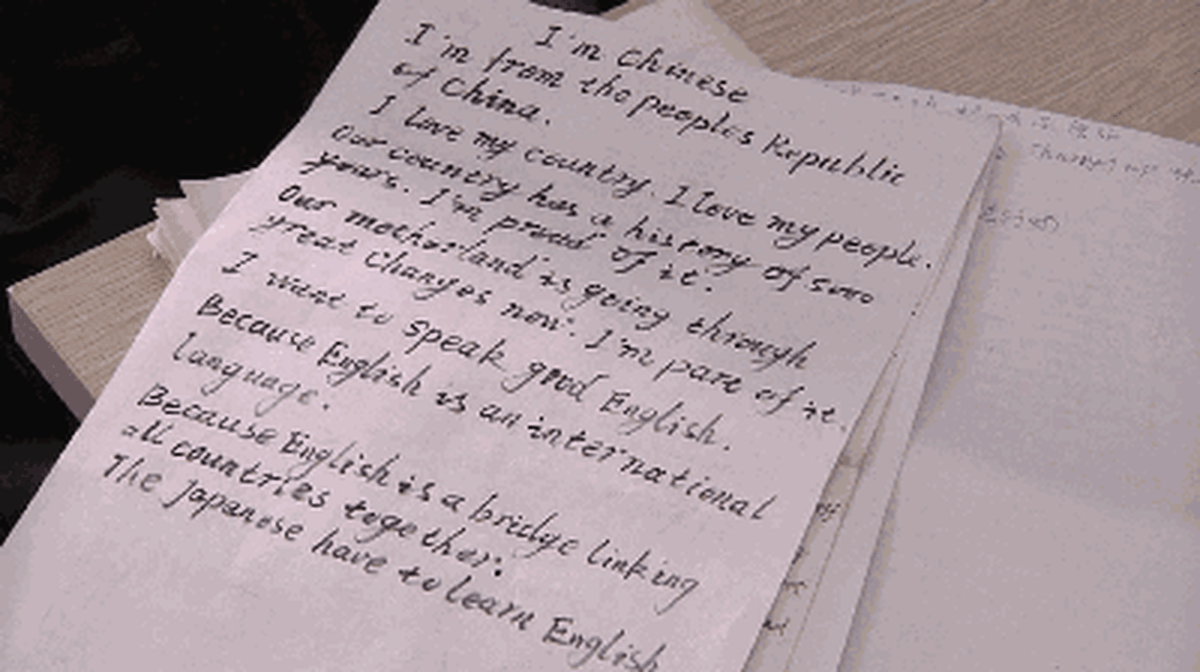 I'm Chinese
I'm from the peoples Republic
of China.
I love my country. I love my people.
Our country has a history of 5000
years. I'm proud of it.
Our motherland is going through
great changes now. I'm part of it.
I want to speak good English.
Because English is an international
language.
Because English is a bridge linking
all countries together.
The Japanese have to learn English